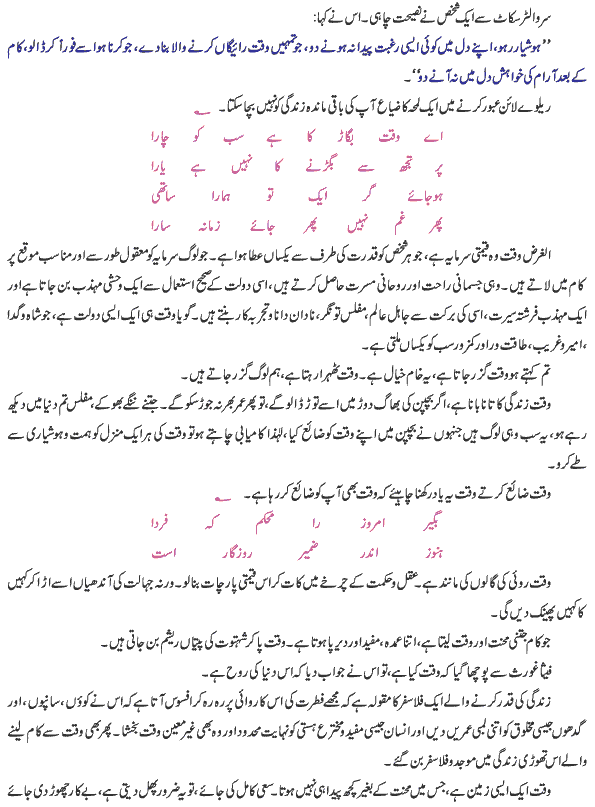 سر والٹر سکاٹ سے ایک شخص نے نصیحت چاہی۔ اس نے کہا:
’’ہوشیار رہو، اپنے دل میں کوئی ایسی رغبت پیدا نہ ہونے دو، جو تمہیں وقت رائیگاں کرنے والا بنادے، جو کرنا ہو اسے فوراً کرڈالو، کام
کے بعد آرام کی خواہش دل میں نہ آنے دو‘‘۔
ریلوے لائن عبور کرنے میں ایک لمحہ کا ضیاع آپ کی باقی ماندہ زندگی کو نہیں بچا سکتا۔ ؎
اے وقت بگاڑ کا ہے سب کو چارا
پر تجھ سے بگڑنے کا نہیں ہے یارا
ہوجائے گر ایک تو ہمارا ساتھی
پھر غم نہیں پھر جائے زمانہ سارا
الغرض وقت وہ قیمتی سرمایہ ہے، جو ہر شخص کو قدرت کی طرف سے یکساں عطا ہوا ہے۔ جو لوگ سرمایہ کو معقول طور سے اور مناسب موقع پر
کام میں لاتے ہیں۔ وہی جسمانی راحت اور روحانی مسرت حاصل کرتے ہیں، اسی دولت کے صحیح استعمال سے ایک وحشی مہذب بن جاتا ہے اور
ایک مہذب فرشتہ سیرت، اسی کی برکت سے جاہل عالم، مفلس تونگر، نادان دانا و تجربہ کار بنتے ہیں۔ گویا وقت ہی ایک ایسی دولت ہے، جو شاہ وگدا
، امیر وغریب، طاقت ور اور کمزور سب کو یکساں ملتی ہے۔
تم کہتے ہو وقت گزر جاتا ہے، یہ خام خیال ہے۔ وقت ٹھہرا رہتا ہے، ہم لوگ گزر جاتے ہیں۔
وقت زندگی کا تانا بانا ہے، اگر بچپن کی بھاگ دوڑ میں اسے توڑ ڈالو گے، تو پھر عمر بھر نہ جوڑ سکو گے۔ جتنے ننگے بھوکے، مفلس تم دنیا میں دیکھ
رہے ہو، یہ سب وہی لوگ ہیں جنہوں نے بچپن میں اپنے وقت کو ضائع کیا، لہٰذا کامیابی چاہتے ہو تو وقت کی ہر ایک منزل کو ہمت و ہوشیاری سے
طے کرو۔
وقت ضائع کرتے وقت یہ یاد رکھنا چاہیئے کہ وقت بھی آپ کو ضائع کر رہا ہے۔ ؎
بگیر امروز را محکم کہ فردا
ہنوز اندر ضمیر روزگار است
وقت روئی کی گالوں کی مانند ہے۔ عقل و حکمت کے چرخے میں کات کر اس قیمتی پارچات بنالو۔ ورنہ جہالت کی آندھیاں اسے اڑا کر کہیں
کا کہیں پھینک دیں گی۔
جو کام جتنی محنت اور وقت لیتا ہے، اتنا عمدہ، مفید اور دیرپا ہوتا ہے۔ وقت پا کر شہتوت کی پتیاں ریشم بن جاتی ہیں۔
فیثا غورث سے پوچھا گیا کہ وقت کیا ہے، تو اس نے جواب دیا کہ اس دنیا کی روح ہے۔
زندگی کی قدر کرنے والے ایک فلاسفر کا مقولہ ہے کہ مجھے فطرت کی اس کاروائی پر رہ رہ کر افسوس آتا ہے کہ اس نے کوؤں، سانپوں، اور
گدھوں جیسی مخلوق کو اتنی لمبی عمریں دیں اور انسان جیسی مفید و مخترع ہستی کو نہایت محدود اور وہ بھی غیر معین وقت بخشا۔ پھر بھی وقت سے کام لینے
والے اس تھوڑی زندگی میں موجد و فلاسفر بن گئے۔
وقت ایک ایسی زمین ہے، جس میں محنت کے بغیر کچھ پیدا ہی نہیں ہوتا۔ سعی کامل کی جائے، تو یہ ضرور پھل دیتی ہے، بے کار چھوڑ دی جائے